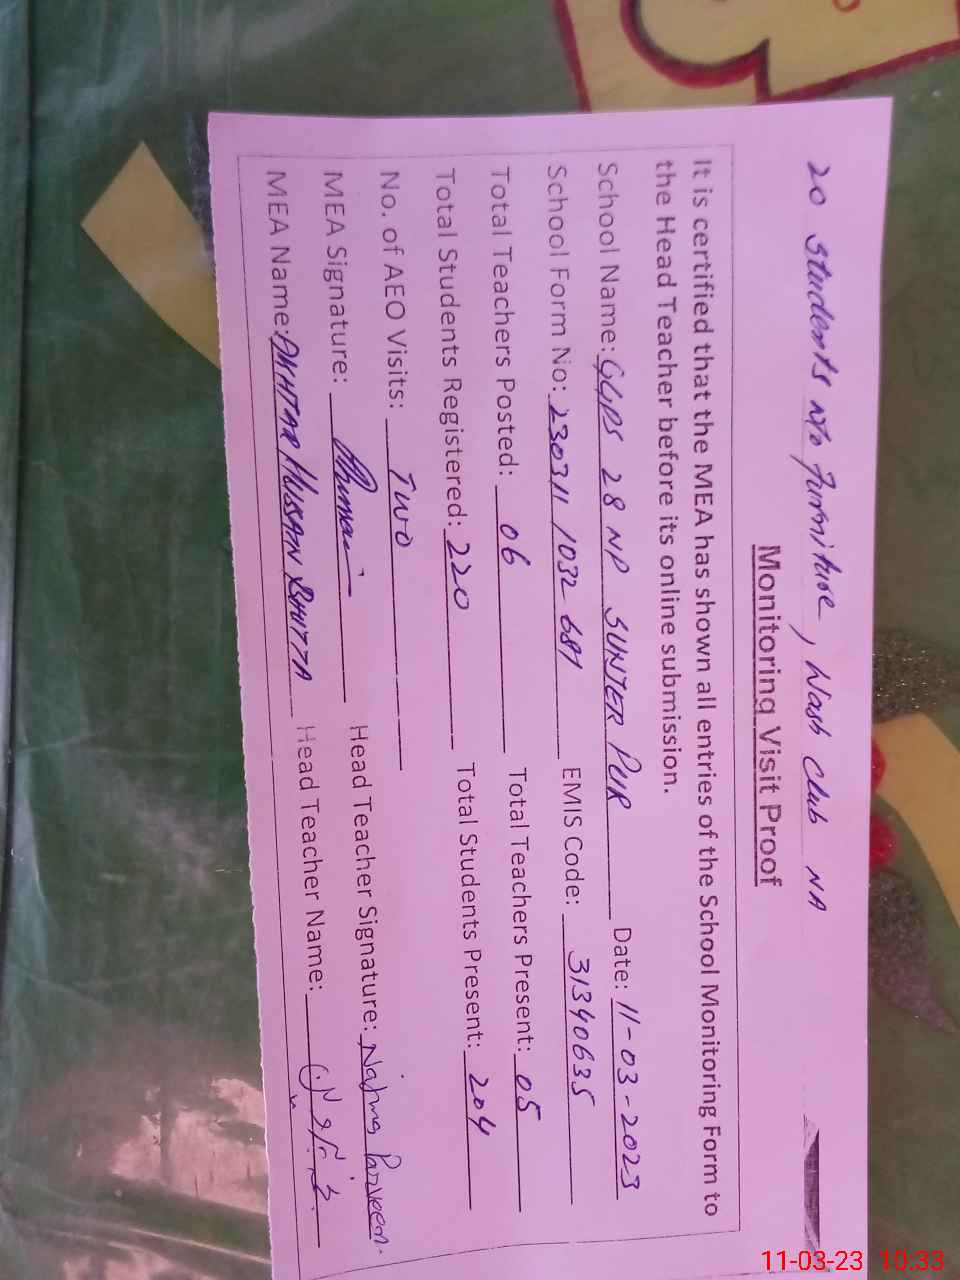 20 students w/o Furniture, Wash Club NA
Monitoring Visit Proof
It is certified that the MEA has shown all entries of the School Monitoring Form to
the Head Teacher before its online submission.
School Name: GGPS 28 NP SUNTER PUR Date: 11-03-2023
School Form No: 230311 1032 681 EMIS Code: 31340635
Total Teachers Posted: 06 Total Teachers Present: 05
Total Students Registered: 220 Total Students Present: 204
No. of AEO Visits: Two
MEA Signature: Head Teacher Signature: Najma Parveen
MEA Name: AKHTAR HUSSAN BHUTTA Head Teacher Name: نجمہ پروین
11-03-23 10:33